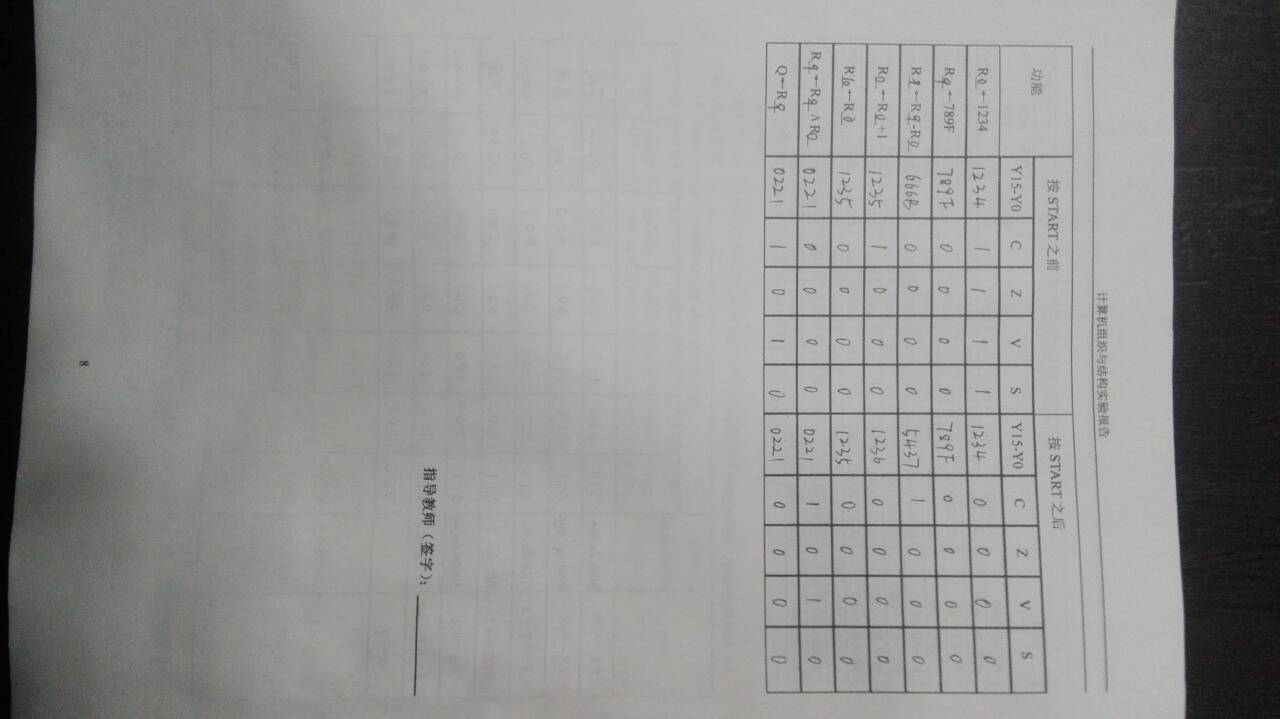 计算机组织与结构实验报告
功能 按 START 之前 按 START 之后
Y15-Y0 C Z V S Y15-Y0 C Z V S
R0←1234 1234 1 1 1 1 1234 0 0 0 0
R9←789F 789F 0 0 0 0 789F 0 0 0 0
R9←R9-R0 666B 0 0 0 0 5437 1 0 0 0
R0←R0+1 1235 1 0 0 0 1236 0 0 0 0
R10←R0 1235 0 0 0 0 1235 0 0 0 0
R9←R9∧R0 0221 0 0 0 0 0221 1 0 1 0
Q←R9 0221 1 0 1 0 0221 0 0 0 0
指导教师（签字）：
8